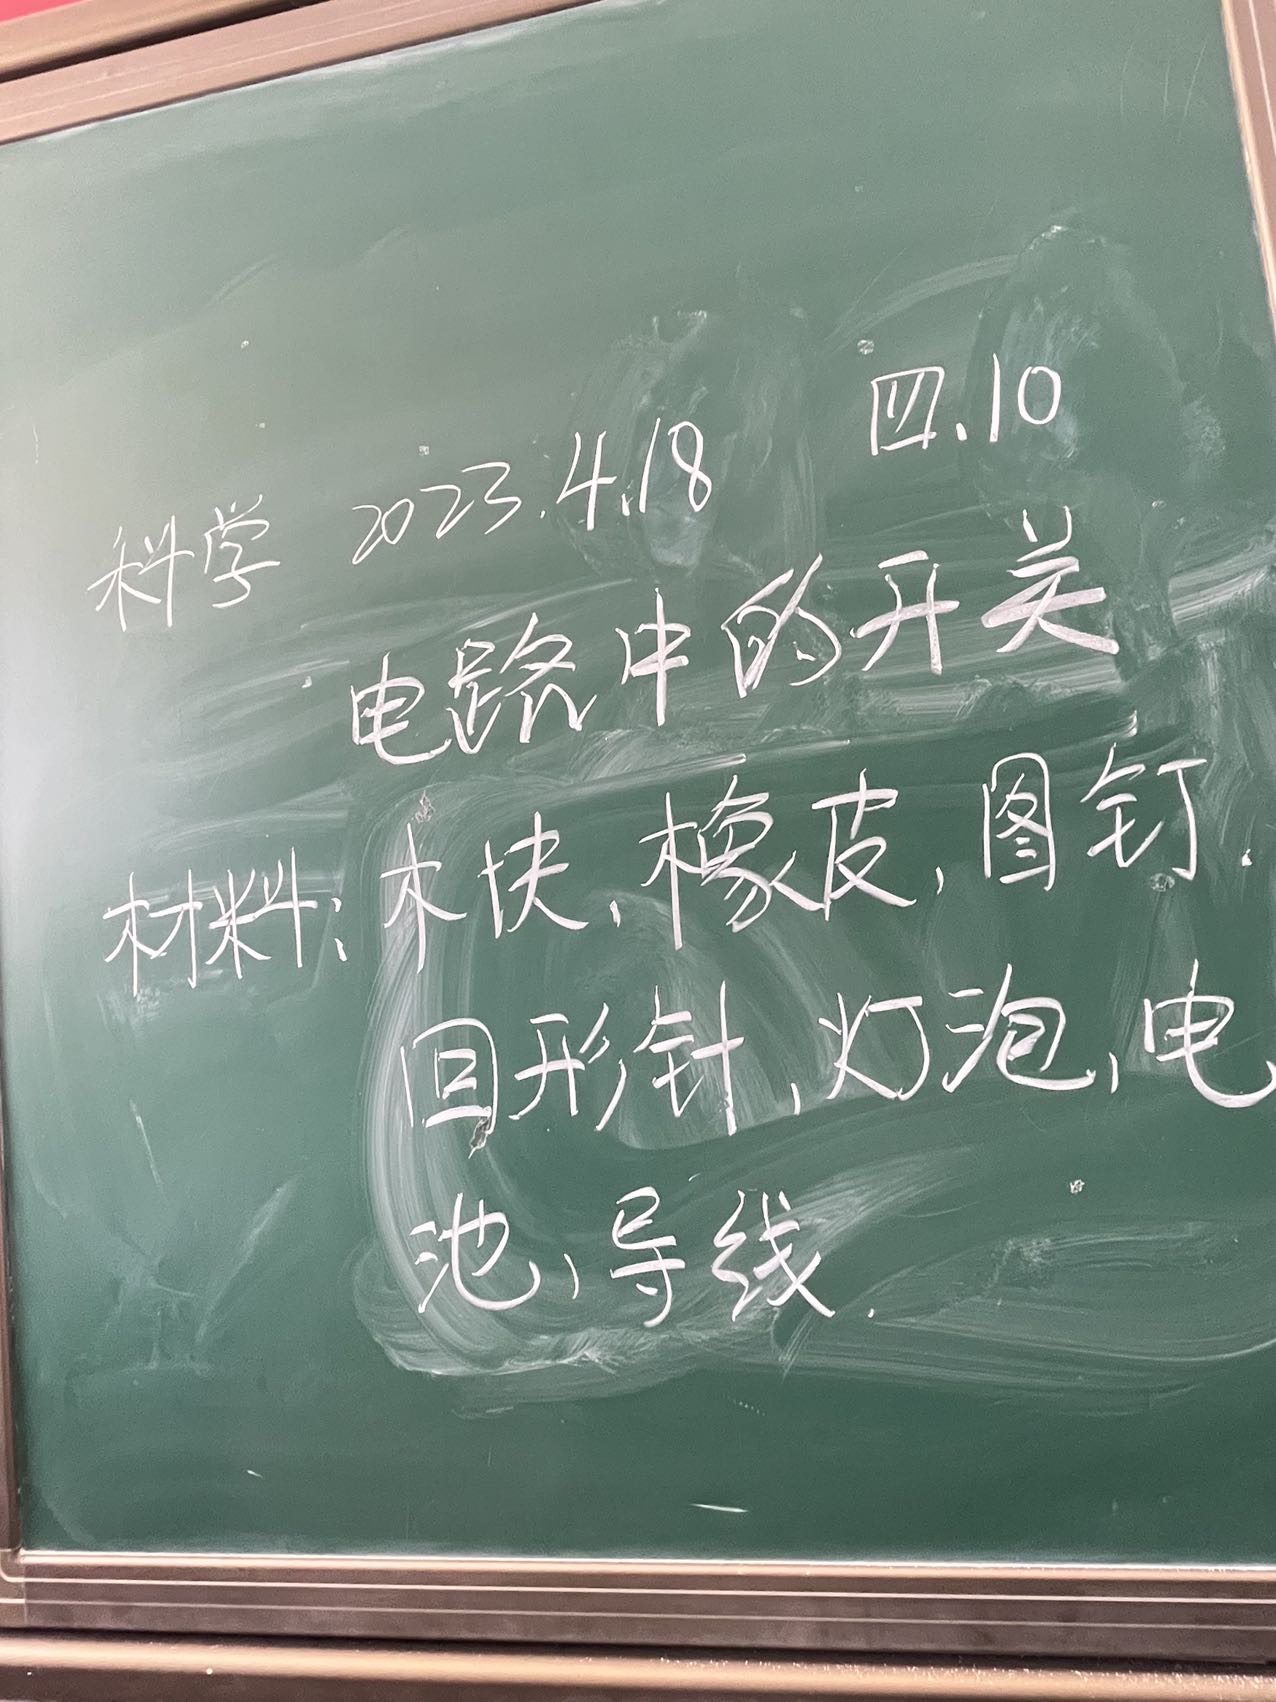 科学 2023.4.18 四.10
电路中的开关
材料:木块,橡皮,图钉.
回形针,灯泡,电
池,导线.